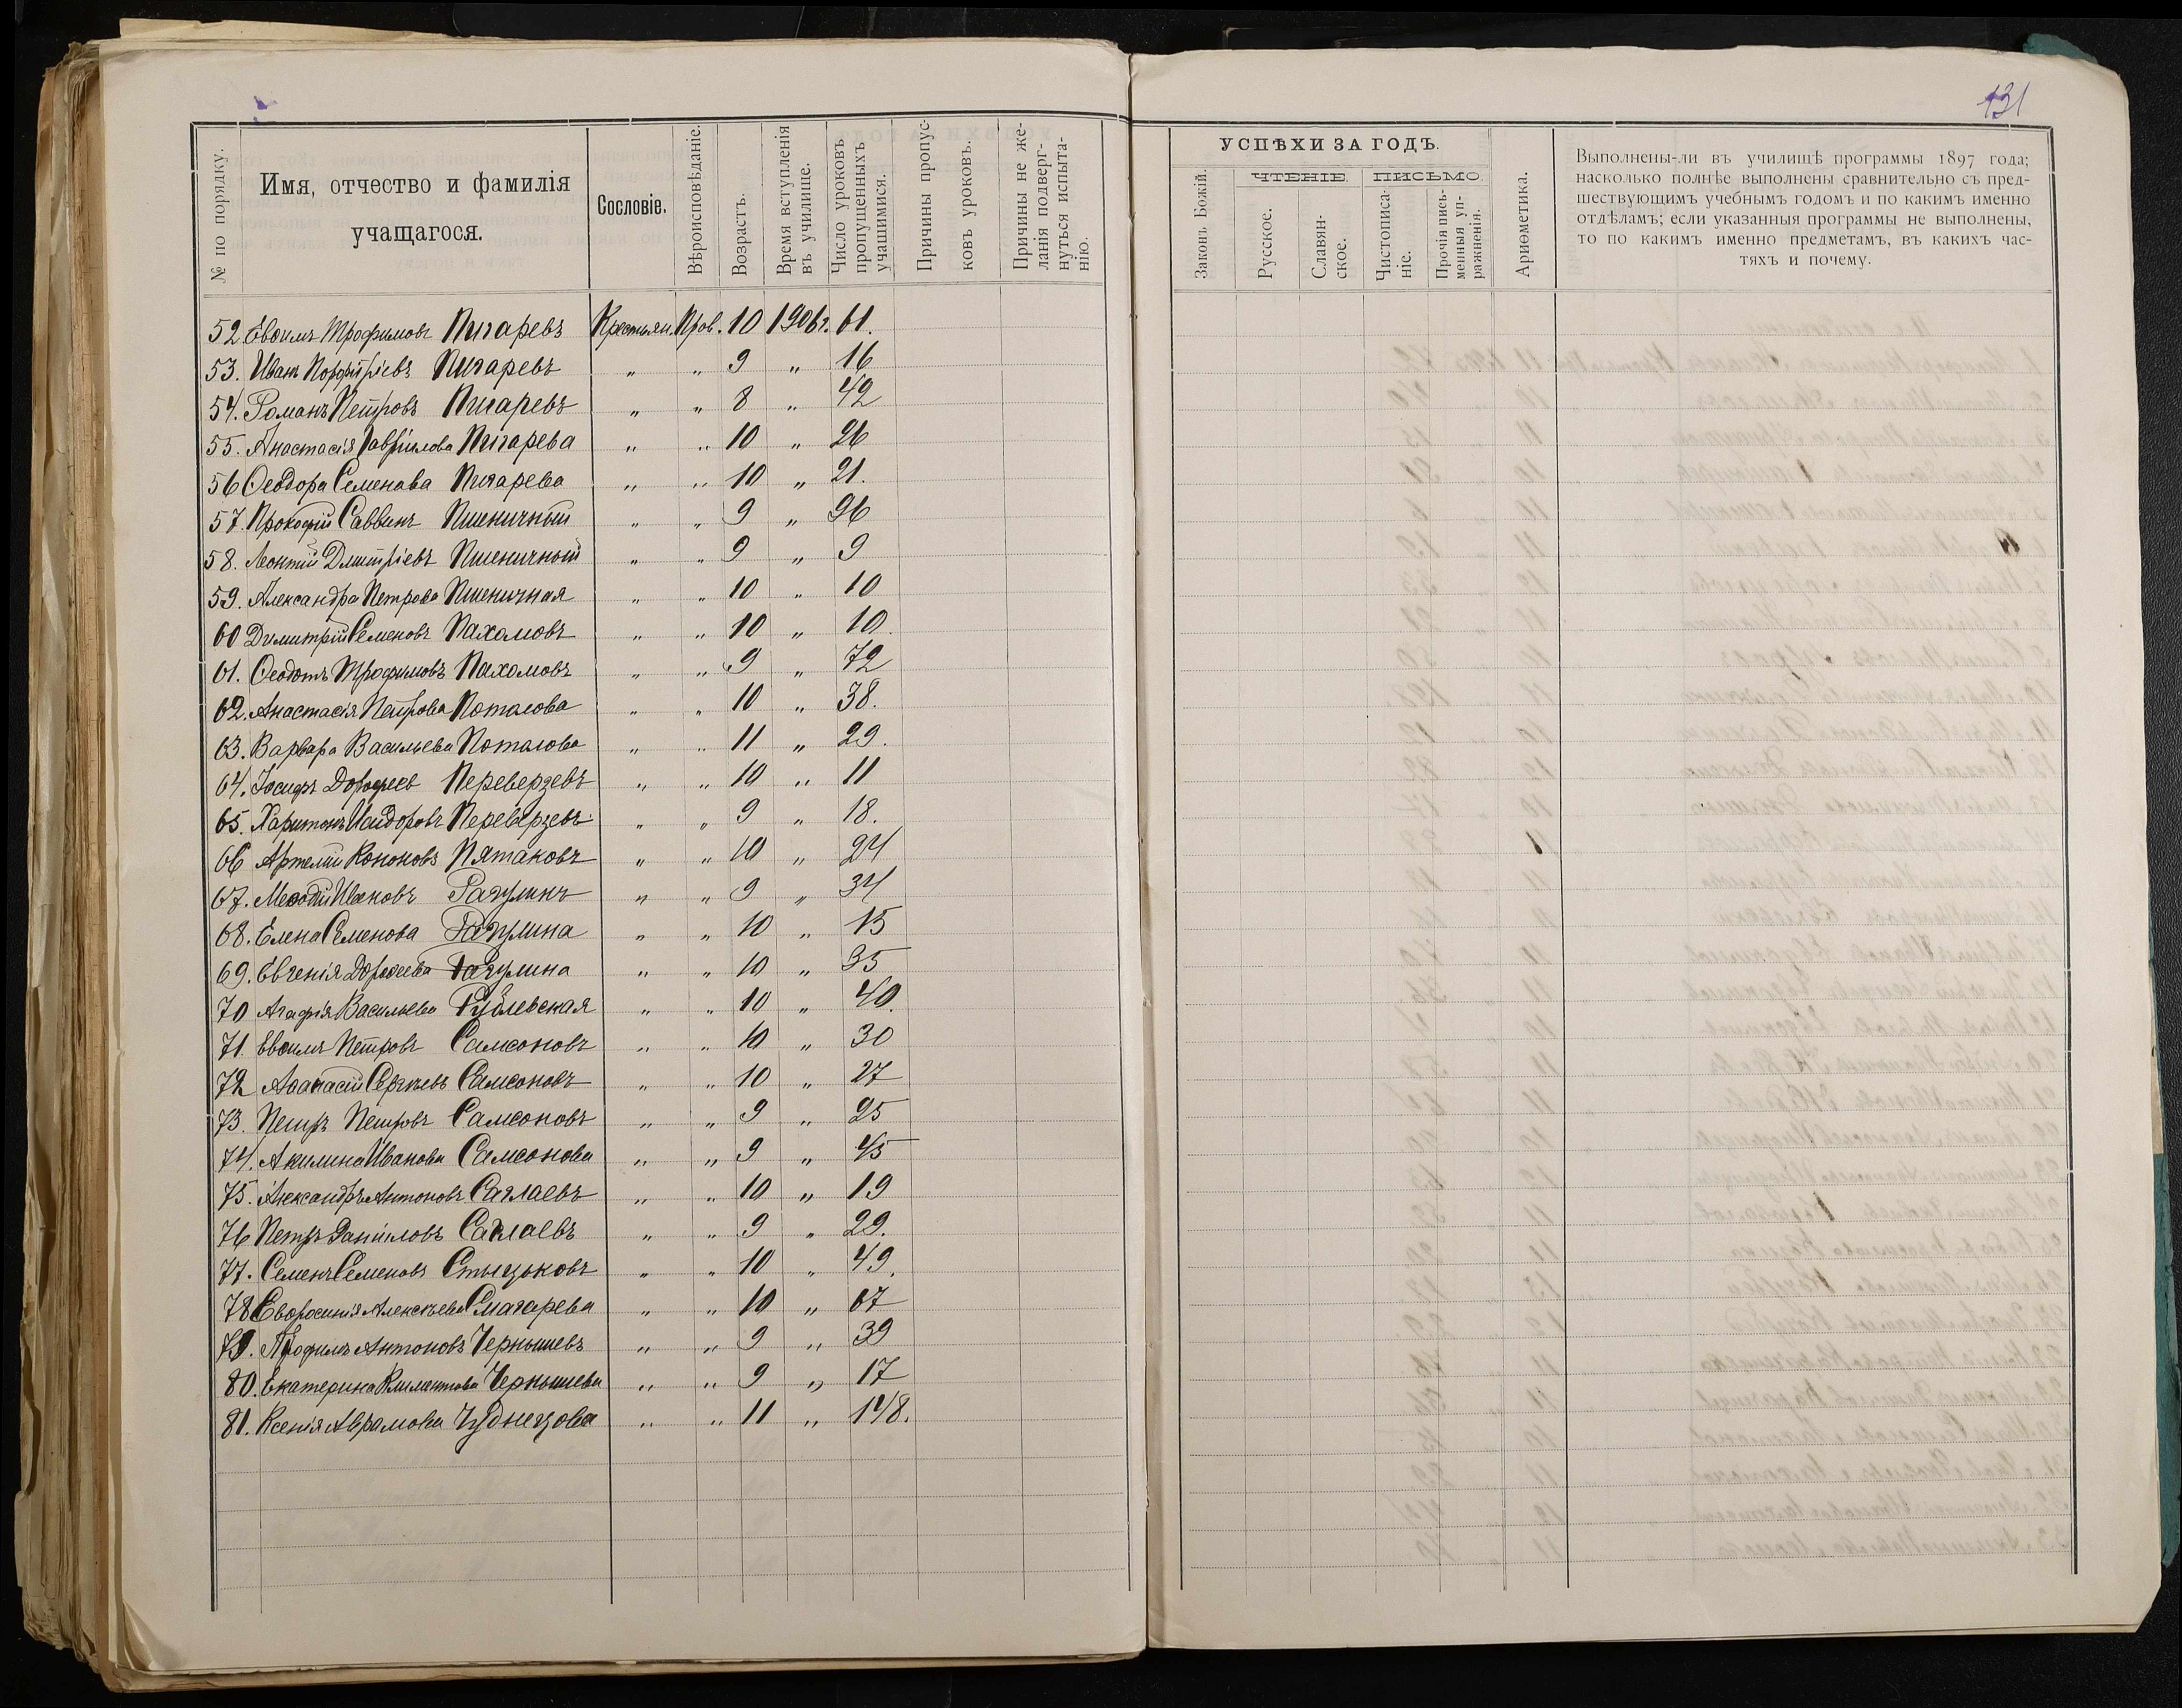 131
№ по порядку.
Имя, отчество и фамилія учащагося.
Сословіе.
Вѣроисповѣданіе.
Возрастъ.
Время вступленія въ училище.
Число уроковъ пропущенныхъ учащимися.
Причины пропусковъ уроковъ.
Причины не желанія подвергнуться испытанію.
УСПѢХИ ЗА ГОДЪ.
Законъ Божій.
ЧТЕНІЕ.
Русское.
Славянское.
ПИСЬМО.
Чистописаніе.
Прочія письменныя упражненія.
Ариѳметика.
Выполнены-ли въ училищѣ программы 1897 года;
насколько полнѣе выполнены сравнительно съ пред-
шествующимъ учебнымъ годомъ и по какимъ именно
отдѣламъ; если указанныя программы не выполнены,
то по какимъ именно предметамъ, въ какихъ час-
тяхъ и почему.
52 Евѳимъ Трофимовъ Пигаревъ Крестьян. Прав. 10 1906 г. 61.
53. Иванъ Порфиріевъ Пигаревъ " " 9 " 16
54. Романъ Петровъ Пигаревъ " " 8 " 42
55. Анастасія Гавриилова Пигарева " " 10 " 26
56 Ѳеодора Семенава Пигарева " " 10 " 21.
57. Прокофій Саввинъ Пшеничный " " 9 " 96
58. Леонтій Димитріевъ Пшеничный " " 9 " 9
59. Александра Петрова Пшеничная " " 10 " 10
60 Димитрій Семеновъ Пахомовъ " " 10 " 10.
61. Ѳеодотъ Трофимовъ Пахомовъ " " 9 " 72
62. Анастасія Петрова Потапова " " 10 " 38.
63. Варвара Васильева Потапова " " 11 " 29.
64. Іосифъ Дорофеев Переверзевъ " " 10 " 11
65. Харитонъ Исидоровъ Переверзевъ " " 9 " 18.
66 Артемій Кононовъ Пятаковъ " " 10 " 24
67. Меѳодій Ивановъ Рагулинъ " " 9 " 34
68. Елена Семенова Рагулина " " 10 " 15
69. Евгенія Дорофеева Рагулина " " 10 " 35
70 Агафія Васильева Рублевская " " 10 " 40.
71. Евѳимъ Петровъ Самсоновъ " " 10 " 30
72 Аѳанасій Сергѣевъ Самсоновъ " " 10 " 27
73. Петръ Петровъ Самсоновъ " " 9 " 25
74. Акилина Иванова Самсонова " " 9 " 45
75. Александръ Антоновъ Саглаевъ " " 10 " 19
76 Петръ Даниловъ Саглаевъ " " 9 " 29.
77. Семенъ Семеновъ " " 10 " 49.
78 Евфросинія Алексѣева " " 10 " 67
79. Трофимъ Антоновъ Чернышевъ " " 9 " 39
80. Екатерина Климентова Чернышева " " 9 " 17
81. Ксенія Аврамова " " 11 " 148.